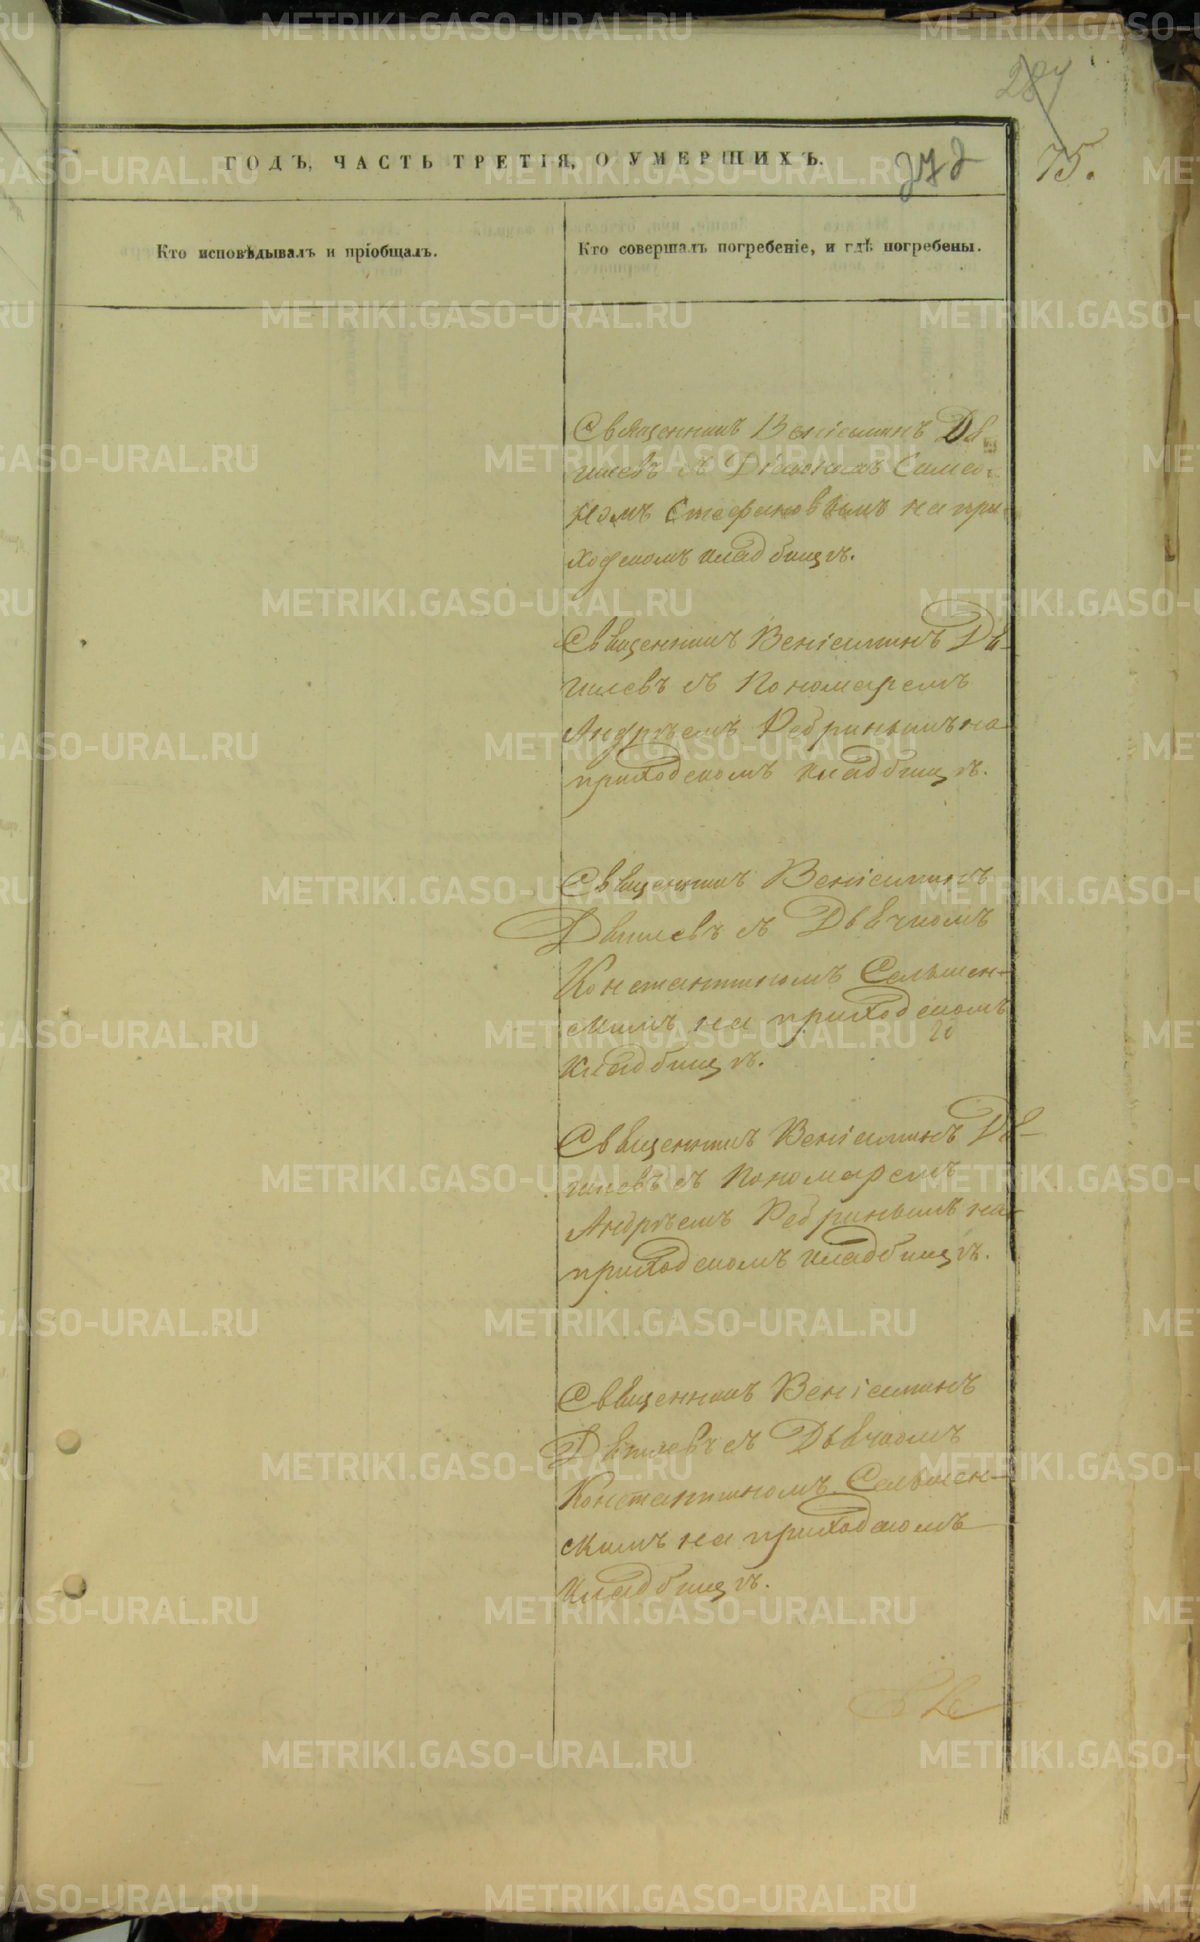 284
75.
ГОДЪ, ЧАСТЬ ТРЕТІЯ, О УМЕРШИХЪ.
272
Кто исповѣдывалъ и пріобщалъ.
Кто совершалъ погребеніе, и гдѣ погребены.
Священникъ Веніеминъ Дя-
гилевъ съ Діакономъ Симео-
номъ Стефановымъ на при-
ходскомъ кладбищѣ.
Священникъ Веніеминъ Дя-
гилевъ съ Пономаремъ
Андрѣемъ Ребринымъ на
приходскомъ кладбищѣ.
Священникъ Веніеминъ
Дягилевъ съ Дьячкомъ
Константиномъ Сельмен-
скимъ на приходскомъ
кладбищѣ.
Священникъ Веніеминъ Дя-
гилевъ съ Пономаремъ
Андрѣемъ Ребринымъ на
приходскомъ кладбищѣ.
Священникъ Веніеминъ
Дягилевъ съ Дьячкомъ
Константиномъ Сельмен-
скимъ на приходскомъ
кладбищѣ.
METRIKI.GASO-URAL.RU